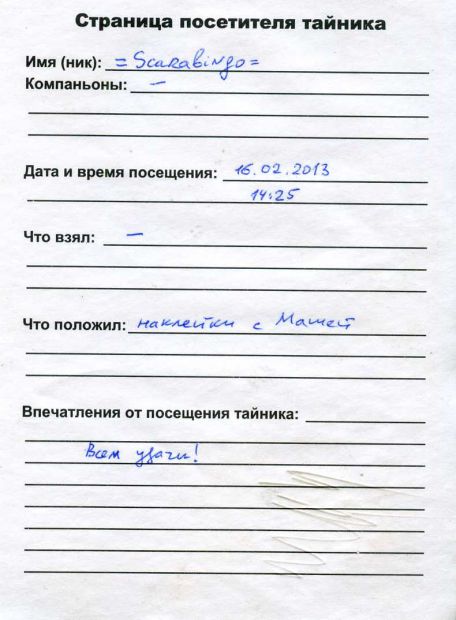 Страница посетителя тайника
Имя (ник): =Scarabingo=
Компаньоны: —
Дата и время посещения: 16.02.2013
14:25
Что взял: —
Что положил: наклейки с Машей
Впечатления от посещения тайника:
Всем удачи!